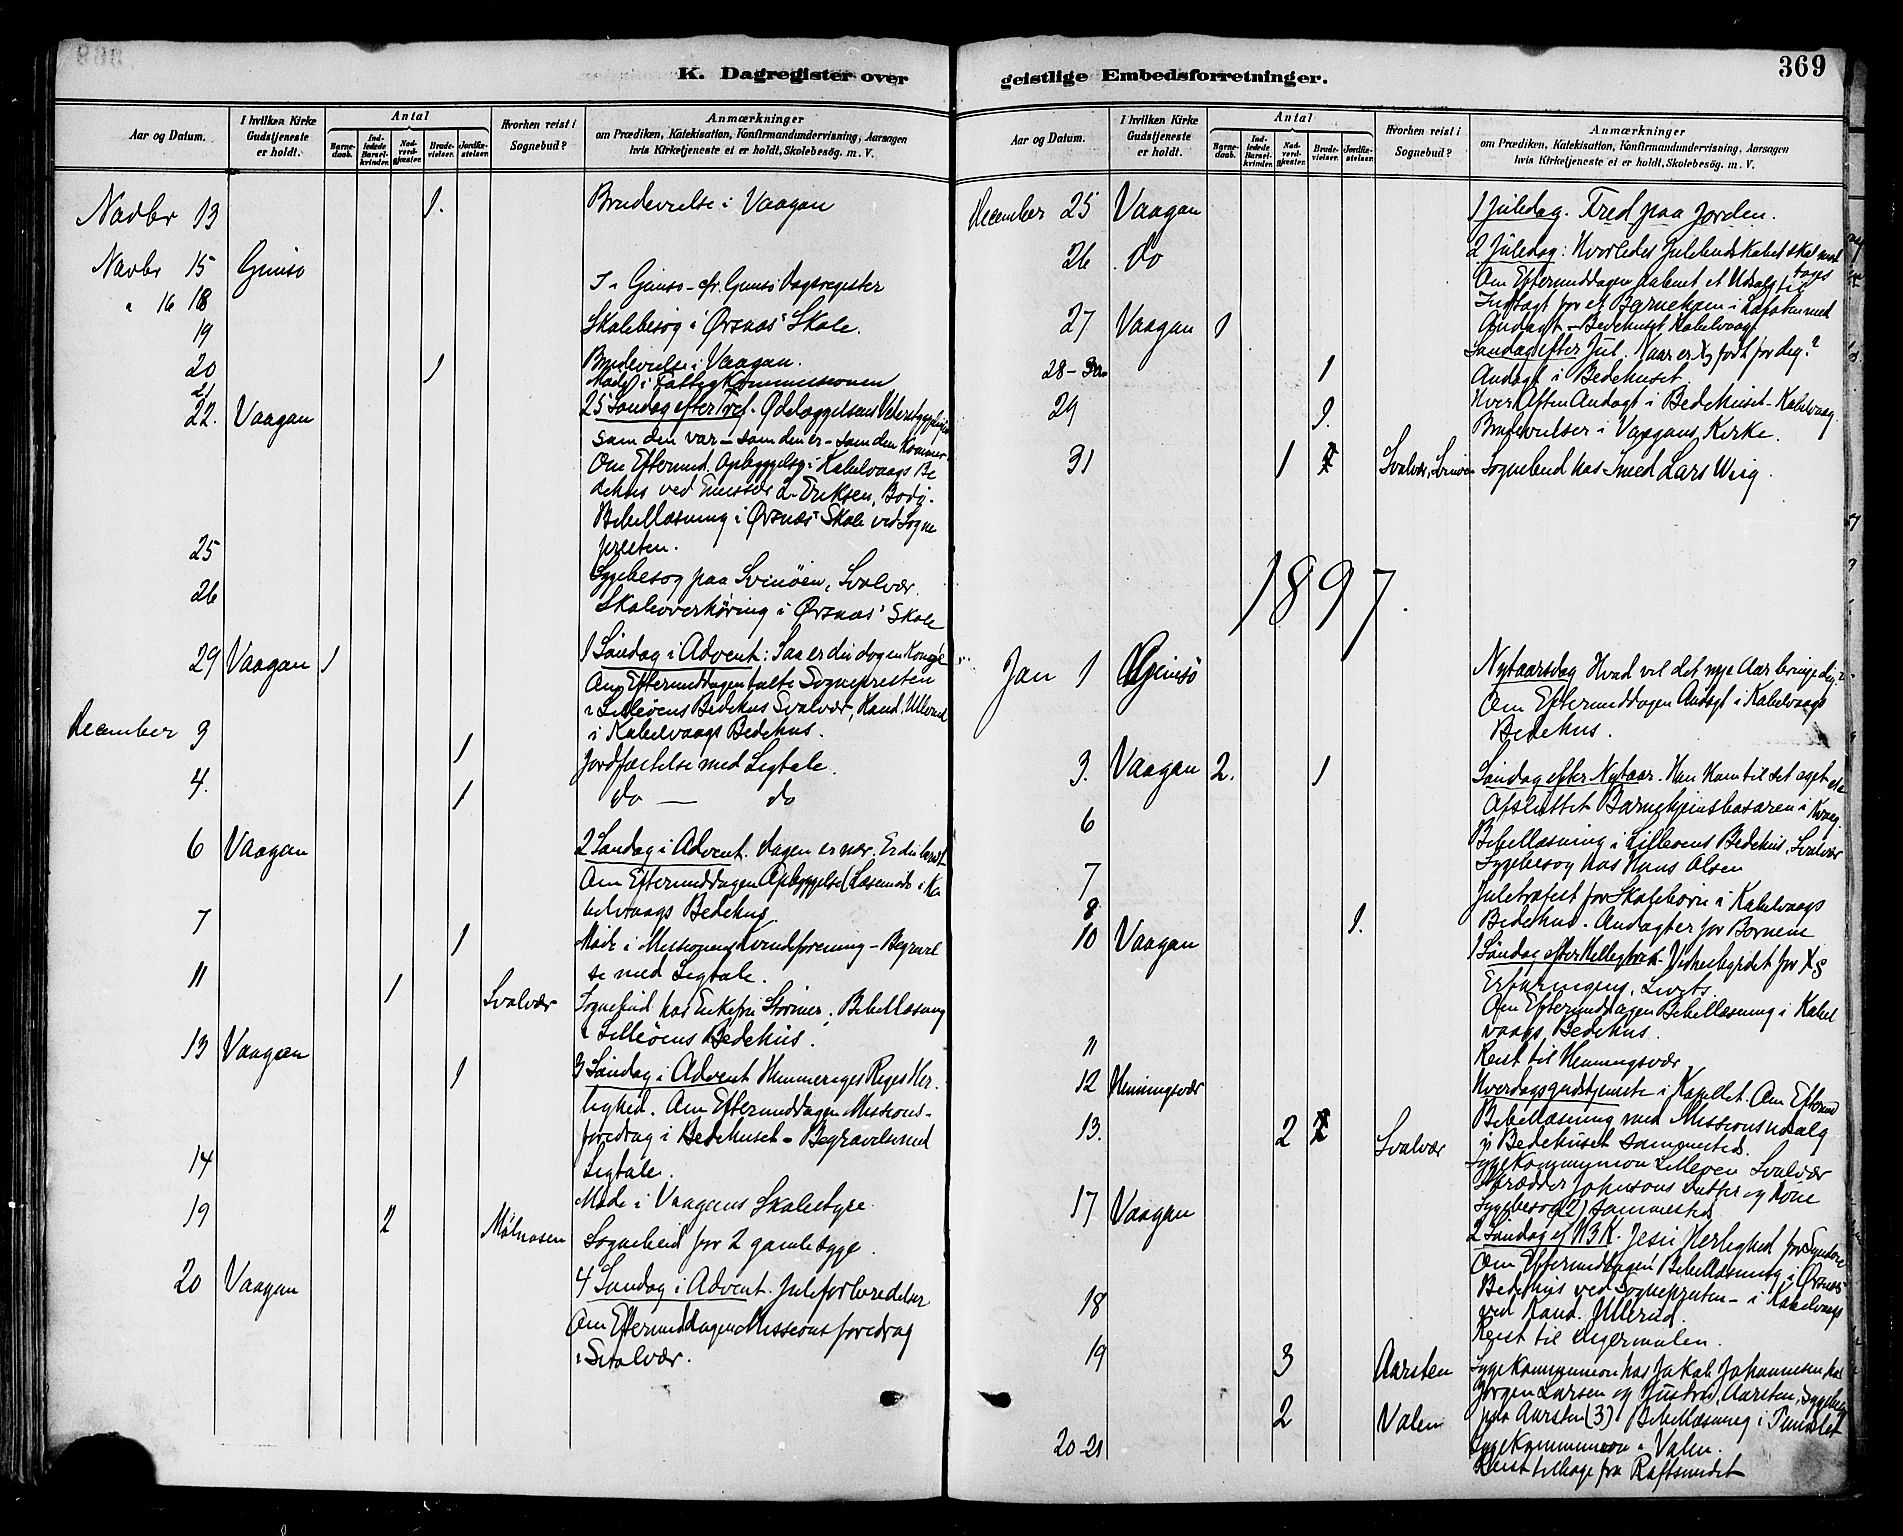 369
K. Dagregister over
geistlige Embedsforretninger.
Aar og Datum.
I hvilken Kirke Gudstjeneste er holdt.
Antal
Barnedaab.
Indledede Barselkvinder.
Nadverdgjester.
Brudevielser.
Jordfæstelser.
Hvorhen reist i Sognebud?
Anmærkninger
om Prædiken, Katekisation, Konfirmandundervisning, Aarsagen
hvis Kirketjeneste ei er holdt, Skolebesög. m. V.
Novbr 13 1. Brudevielse i Vaagan
Novbr 15 Gimsö
" 16 18 I Gimsö - cfr. Gimsö Dagsregister
19 Skolebesög i Örsnæs Skole.
20 1 Brudevielse i Vaagan.
21 Möde i Fattigkommissionen
22. Vaagan 25 Söndag efter Tref. Ödelæggelsens Vederstyggelighed
som den var - som den er - som den kommer
Om Eftermid. Opbyggelse i Kabelvaags Be
dehus ved Emissær Eriksen, Bodö.
Bibellæsning i Örsnæs Skole ved Sogne
presten.
25 Sygebesög paa Svinöen, Svolvær.
26 Skoleoverhöring i Örsnæs Skole
29 Vaagan 1 1 Söndag i Advent: Saa er du dog en Konge
Om Eftermiddagen talte Sognepresten
i Lilleöens Bedehus Svolvær, Kand. Ullerud
i Kabelvaags Bedehus.
December 3 1 Jordfæstelse med Ligtale.
4. 1 do — do
6 Vaagan 2 Söndag i Advent. Dagen er nær. Er du beredt
Om Eftermiddagen Opbyggelse (Læsemöde i Ka
belvaags Bedehus
7 1 Möde i Missionens Kvindeforening - Begravel
se med Ligtale.
11 1 Svolvær Sognebud hos Enkefru Störmer. Bibellæsning
i Lilleöens Bedehus.
13 Vaagan 1 3 Söndag i Advent Himmeriges Riges Her
lighed. Om Eftermiddagen Missions-
foredrag i Bedehuset - Begravelse med
Ligtale.
14 Möde i Vaagans Skolestyre.
19 2 Mölnosen Sognebud for 2 gamle syge.
20 Vaagan 4 Söndag i Advent. Juleforberedelser
Om Eftermiddagen Missionsforedrag
i Svolvær.
Aar og Datum.
I hvilken Kirke Gudstjeneste er holdt.
Antal
Barnedaab.
Indledede Barselkvinder.
Nadverdgjester.
Brudevielser.
Jordfæstelser.
Hvorhen reist i Sognebud?
Anmærkninger
om Prædiken, Katekisation, Konfirmandundervisning, Aarsagen
hvis Kirketjeneste ei er holdt, Skolebesög. m. V.
December 25 Vaagan 1 Juledag. Fred paa Jorden.
26 do 2 Juledag: Hvorledes Julebudskabet skal mod
tages
Om Eftermiddagen aabnet et Udsalg til
Indtægt for et Börnehjem i Lofoten med
Andagt - Bedehuset Kabelvaag
27 Vaagan 1 Söndag efter Jul. Naar er X fodt for dig?
Andagt i Bedehuset
28 - 30 1 Hver Aften Andagt i Bedehuset - Kabelvaag
29 Brudevielser i Vaagans Kirke.
31 1 Svolvær, Svinöen Sognebud hos Smed Lars Wiig.
1897.
Jan 1 Gimsö Nytaarsdag Hvad vil det nye Aar bringe dig?
Om Eftermiddagen Andagt i Kabelvaags
Bedehus.
3. Vaagan 2. 1 Söndag efter Nytaar. Han kom til sit eget
Afsluttet Barnehjemsbasaren i Kvaag.
6 Bibellæsning i Lilleöens Bedehus, Svolvær
Sygebesög hos Hans Olsen
7 Juletræfest for Skolebörn i Kabelvaags
8 1. Bedehus. Andagter for Bornene
10 Vaagan 1 Söndag efter Hellig tre K. Vidnesbyrdet for Xs
Erfaringens Livets
Om Eftermiddagen Bibellæsning i Kabel
vaags Bedehus.
11 Reist til Henningsvær
12 Henningsvær Hverdagsgudstjeneste i Kapellet. Om Efterm
Bibellæsning med Missionsudvalg
i Bedehuset sammesteds.
13. 2 Svolvær Sygekommunion Lilleöen Svolvær
Skrædder Johnsons Datter og Kone
Sygebesög (2) sammesteds
17 Vaagan 2 Söndag ef H 3 K. Jesu Herlighed for Syndere
Om Eftermiddagen Bibellæsning i Örsnæs
Bedehus ved Sognepresten - i Kabelvaags
ved Kand. Ullerud.
18 Reist til Digermulen.
19 3 Aarsten Sygekommunion hos Jakob Johannesen hos
Jörgen Larsen og Hustru, Aarsten, Sygebesög
paa Aarsten (3) Bibellæsning i
2 Valen Sygekommunion i Valen.
20-21 Reist tilbage fra Raftsundet